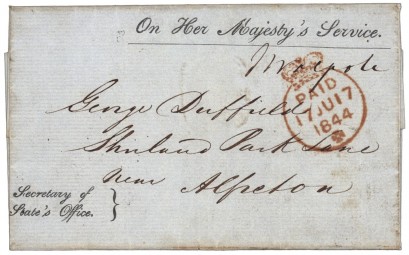 On Her Majesty's Service.
PAID
17 JU 17
1844
George Duffield
Park Lane
near Alfreton
Secretary of
State's Office.